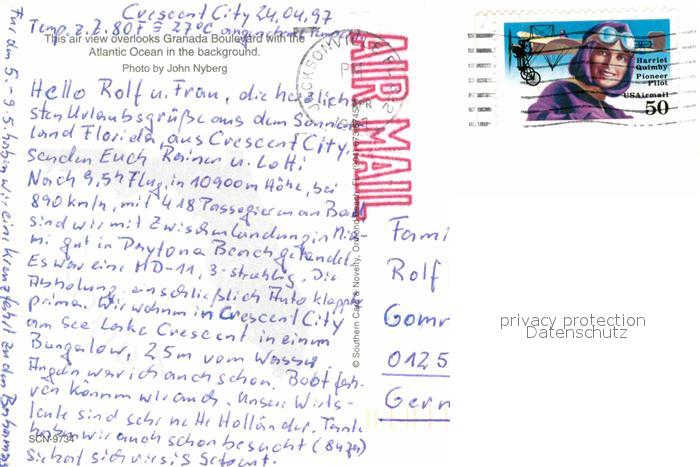 Crescent City 24.04.97
Temp. z.Z. 80 F ≙ 27°C angenehme Temp.
This air view overlooks Granada Boulevard with the
Atlantic Ocean in the background.
Photo by John Nyberg
Hello Rolf u. Frau, die herzlich-
sten Urlaubsgrüße aus dem Sonnen-
land Florida, aus Crescent City,
senden Euch Rainer u. Lotti
Nach 9,5h Flug, in 10900m Höhe, bei
890 km/h, mit 418 Passagieren an Bord
sind wir mit Zwischenlandung in Mia-
mi gut in Daytona Beach gelandet.
Es war eine MD-11, 3-strahlig. Die
Abholung einschließlich Auto klappte
prima. Wir wohnen in Crescent City
am See Lake Crescent in einem
Bungalow, 25m vom Wasser.
Angeln war ich auch schon. Boot fah-
ren können wir auch. Unsere Wirts-
leute sind sehr nette Holländer. Tante
haben wir auch schon besucht (84 J.)
Sie hat sich riesig gefreut.
Für den 5.-9.5 haben wir eine Kreuzfahrt zu den Bahamas
SCN-9734
© Southern Card & Novelty, Ormond Beach, FL
AIR MAIL
JACKSONVILLE
Harriet
Quimby
Pioneer
Pilot
USAirmail
50
Fami
Rolf
Gomr
0125
Germ
privacy protection
Datenschutz